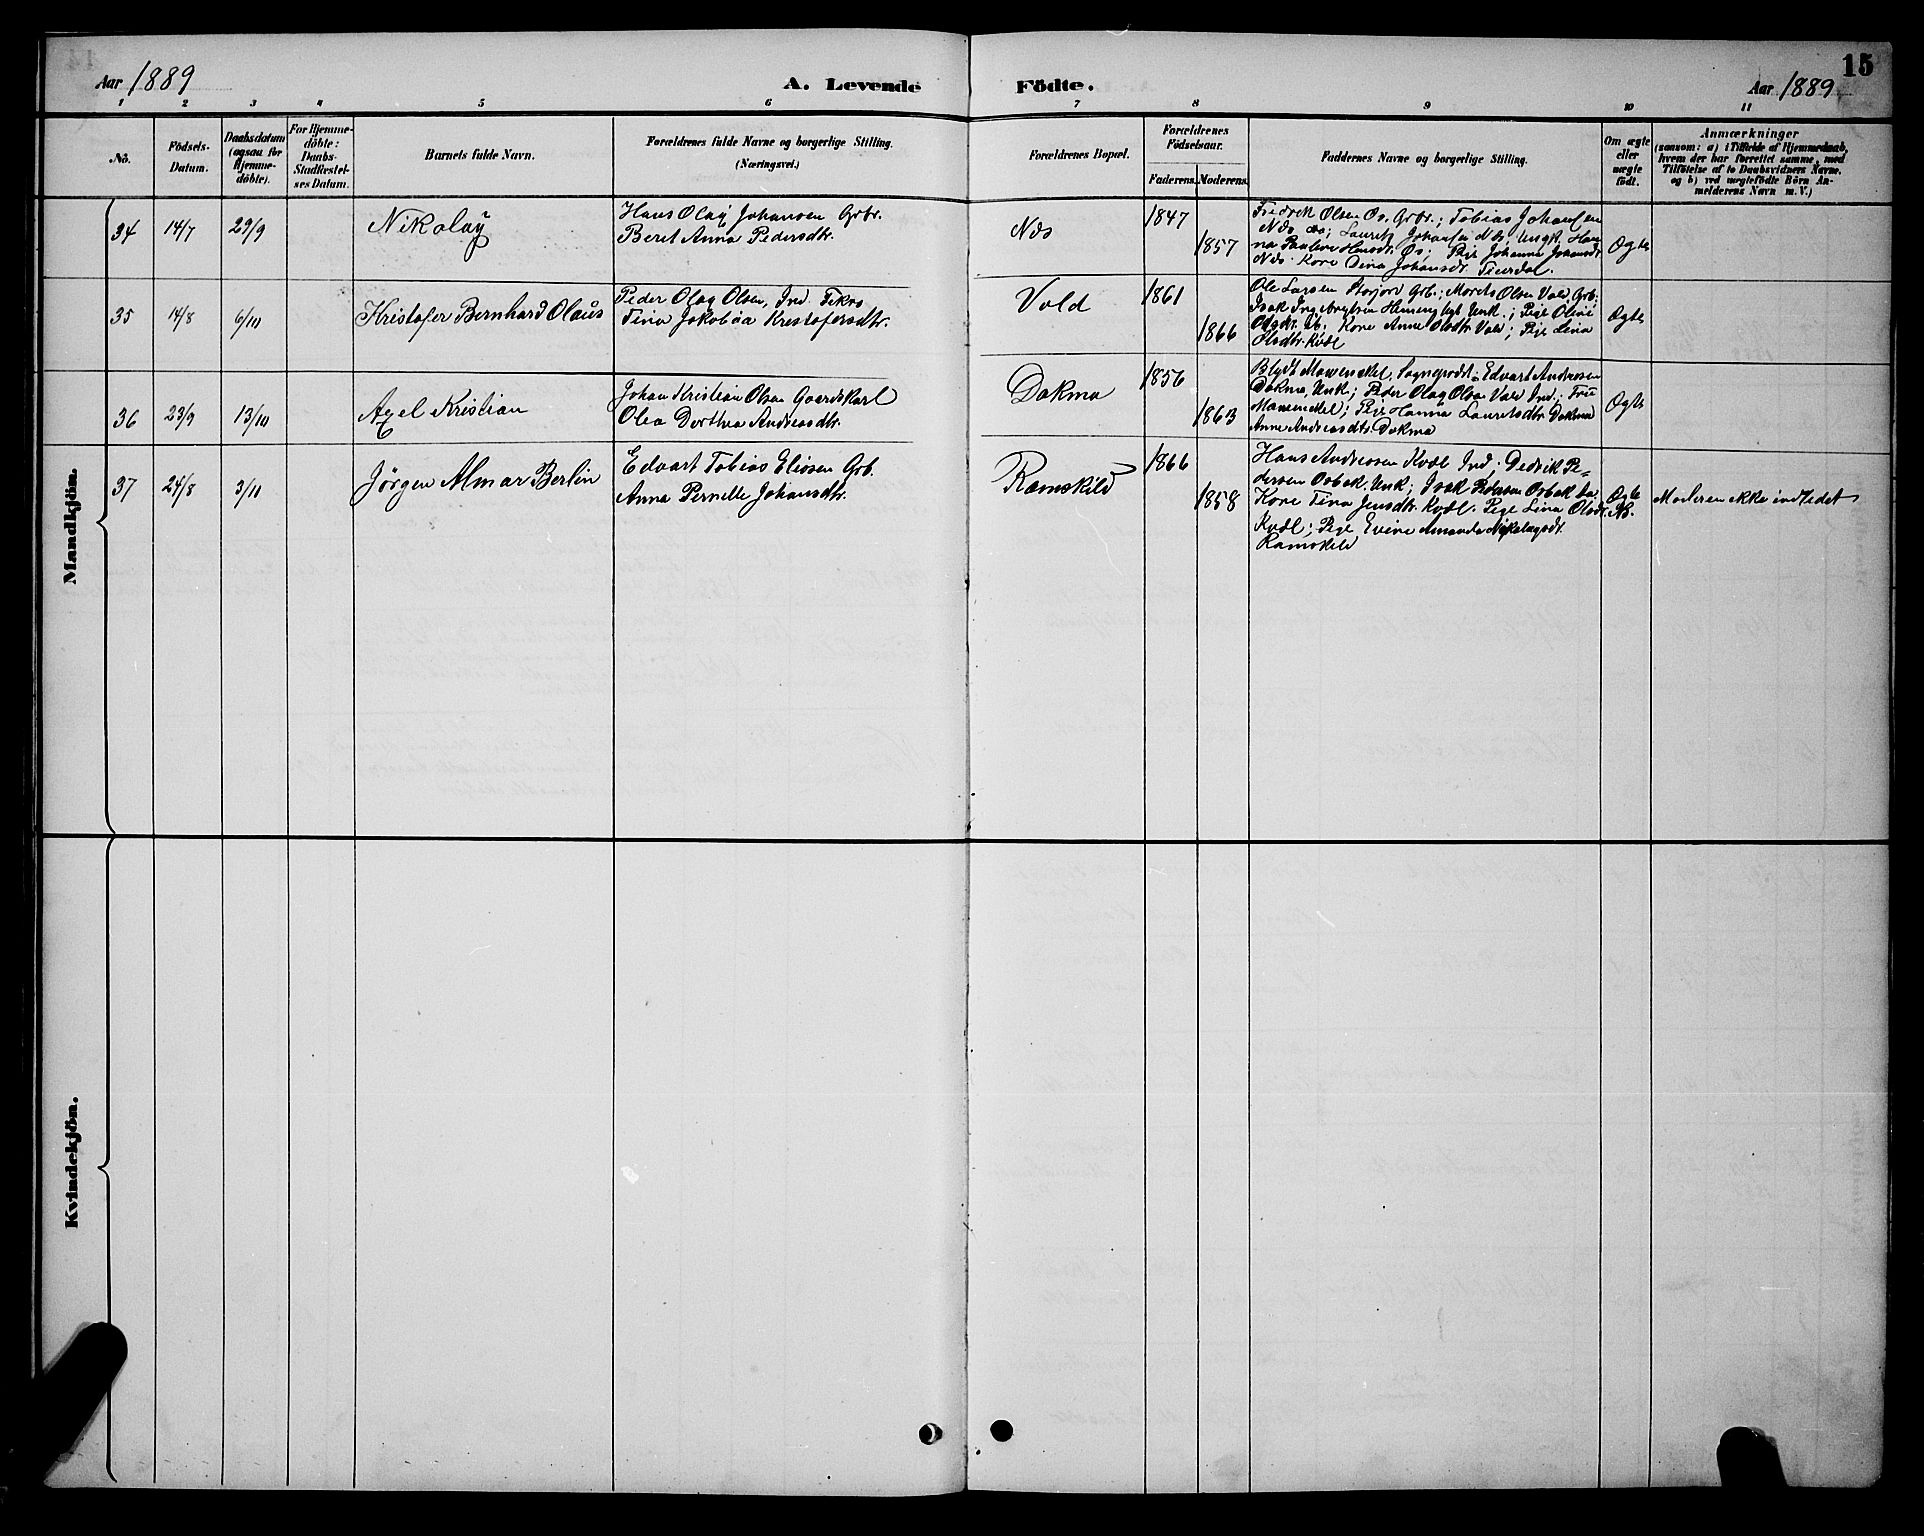 15
Aar 1889 A. Levende Födte. Aar 1889
1 2 3 4 5 6 7 8 9 10 11
No.
Födsels-
Datum.
Daabsdatum
(ogsaa for
Hjemme-
döbte).
For Hjemme-
döbte:
Daabs-
Stadfæstel-
ses Datum.
Barnets fulde Navn.
Forældrenes fulde Navne og borgerlige Stilling.
(Næringsvei.)
Forældrenes Bopæl.
Forældrenes
Födselsaar.
Faderens. Moderens.
Faddernes Navne og borgerlige Stilling.
Om ægte
eller
uægte
födt.
Anmærkninger
(saasom: a) i Tilfælde af Hjemmedaab,
hvem der har forrettet samme, med
Tilföielse af to Daabsvidners Navne.
og b) ved uægtefödte Börn An-
melderens Navn m. V.)
Mandkjön.
34 14/7 29/9 Nikolaÿ
Hans Olaÿ Johansen Grbr.
Beret Anna Pedersdtr.
Næs
1847
1857
Fredrik Olsen Øs, Grbr.; Tobias Johansen
Næs; Lauritz Johansen Næs, Ungk. Han-
na Pauline Hansdtr. Øs; Pige Johanna Johansdt.
Næs. Kone Dina Johansdt.
Ægte
35 14/8 6/10 Kristofer Bernhard Olaus
Peder Olag Olsen, Ind.
Tina Jakobæa Kristofersdtr.
Vald
1861
1866
Ole Larsen Storjord Grb.; Morets Olsen Vald, Grb;
Isak Ingebrigtsen Unk.; Pige Oline
Kone Anne Olsdtr Vald; Pige Lina
Olsdtr. Kvæl
Ægte
36 23/9 13/10 Axel Kristian
Johan Kristian Olsen Gaardskarl
Olea Dorthea Andreasdtr.
Dokmo
1856
1863
Blydt Sogneprest; Edvart Andreasen
Dokmo, Unk; Peder Olag Olsen Vald Ind.; Frue
Pige Hanna Lauretsdtr Dokmo
Anne Andreasdtr. Dokmo
Ægte
37 24/8 3/11 Jörgen Almar Berlin
Edvart Tobias Eliasen Grb.
Anna Pernelle Johansdtr.
Ramskild
1866
1858
Hans Andreasen Kvæl Ind; Dedrik Pe-
dersen Osbak, Unk; Isak Pedersen Osbak
Kone Tina Jensdtr. Kvæl. Pige Lina Olsdtr.
Kvæl; Pige Evine Amanda Nikolagsdt.
Ramskild
Ægte
NB.
Moderen ikke indledet
Kvindekjön.